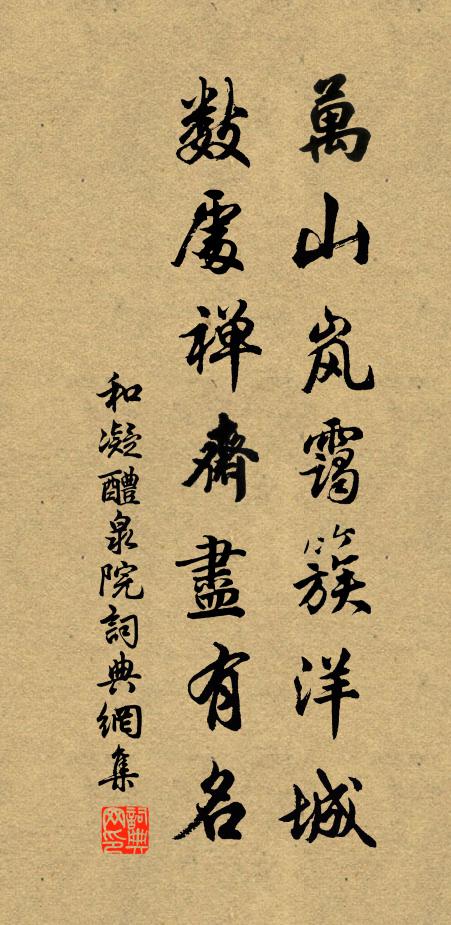 萬山岚靄簇洋城
數處禅齋盡有名
和凝醴泉院詞典網集
詞典网印